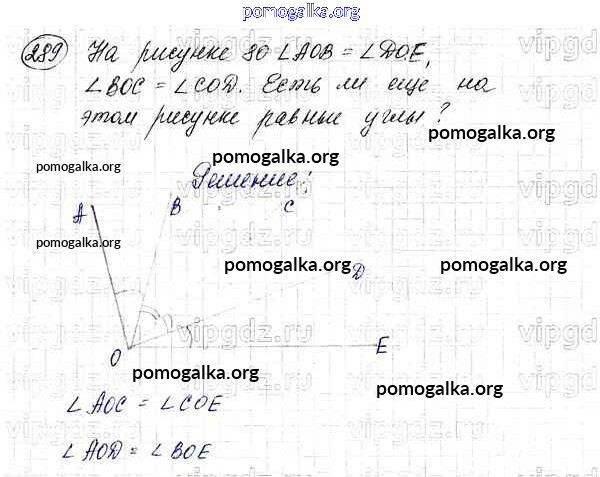 pomogalka.org
289 На рисунке 80 ∠AOB = ∠DOE,
∠BOC = ∠COD. Есть ли еще на
этом рисунке равные углы?
pomogalka.org
pomogalka.org
pomogalka.org
Решение:
A B C
pomogalka.org
pomogalka.org
pomogalka.org
D
vipgdz.ru
O E
pomogalka.org
pomogalka.org
∠AOC = ∠COE
∠AOD = ∠BOE